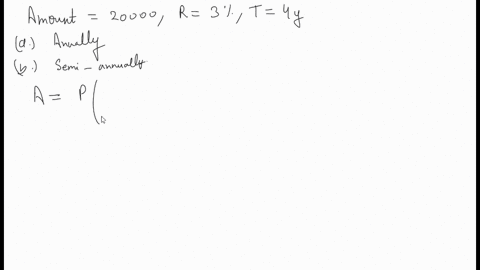 Amount = 20000, R = 3%, T = 4y
(a.) Annually
(b.) Semi-annually
A = P(